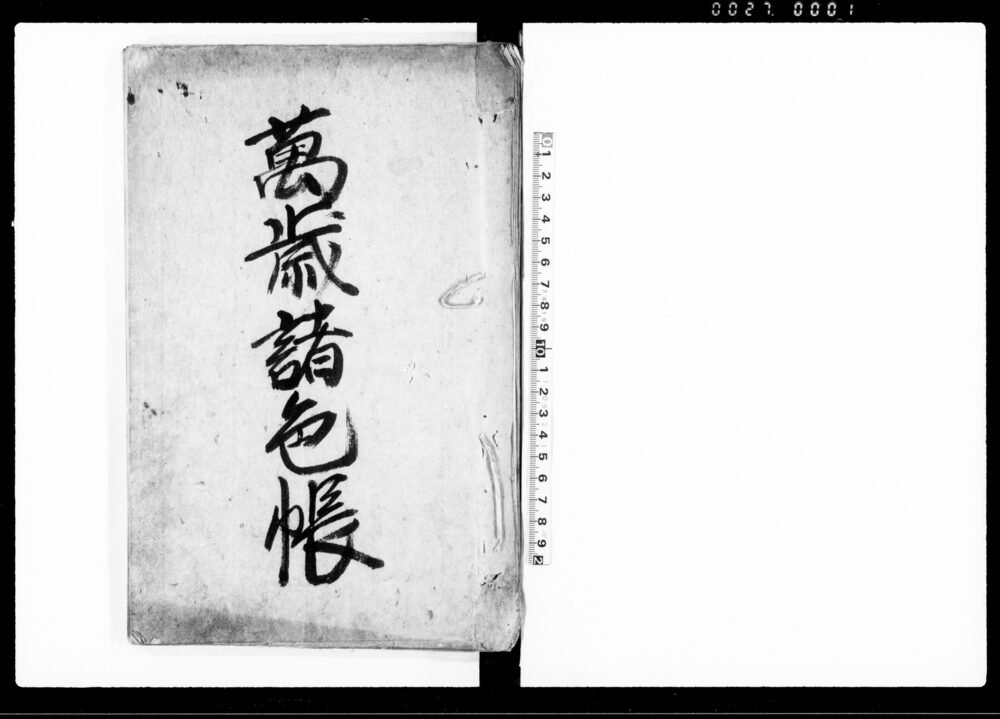 0027. 0001
萬歳諸色帳
0 1 2 3 4 5 6 7 8 9 10 1 2 3 4 5 6 7 8 9 2